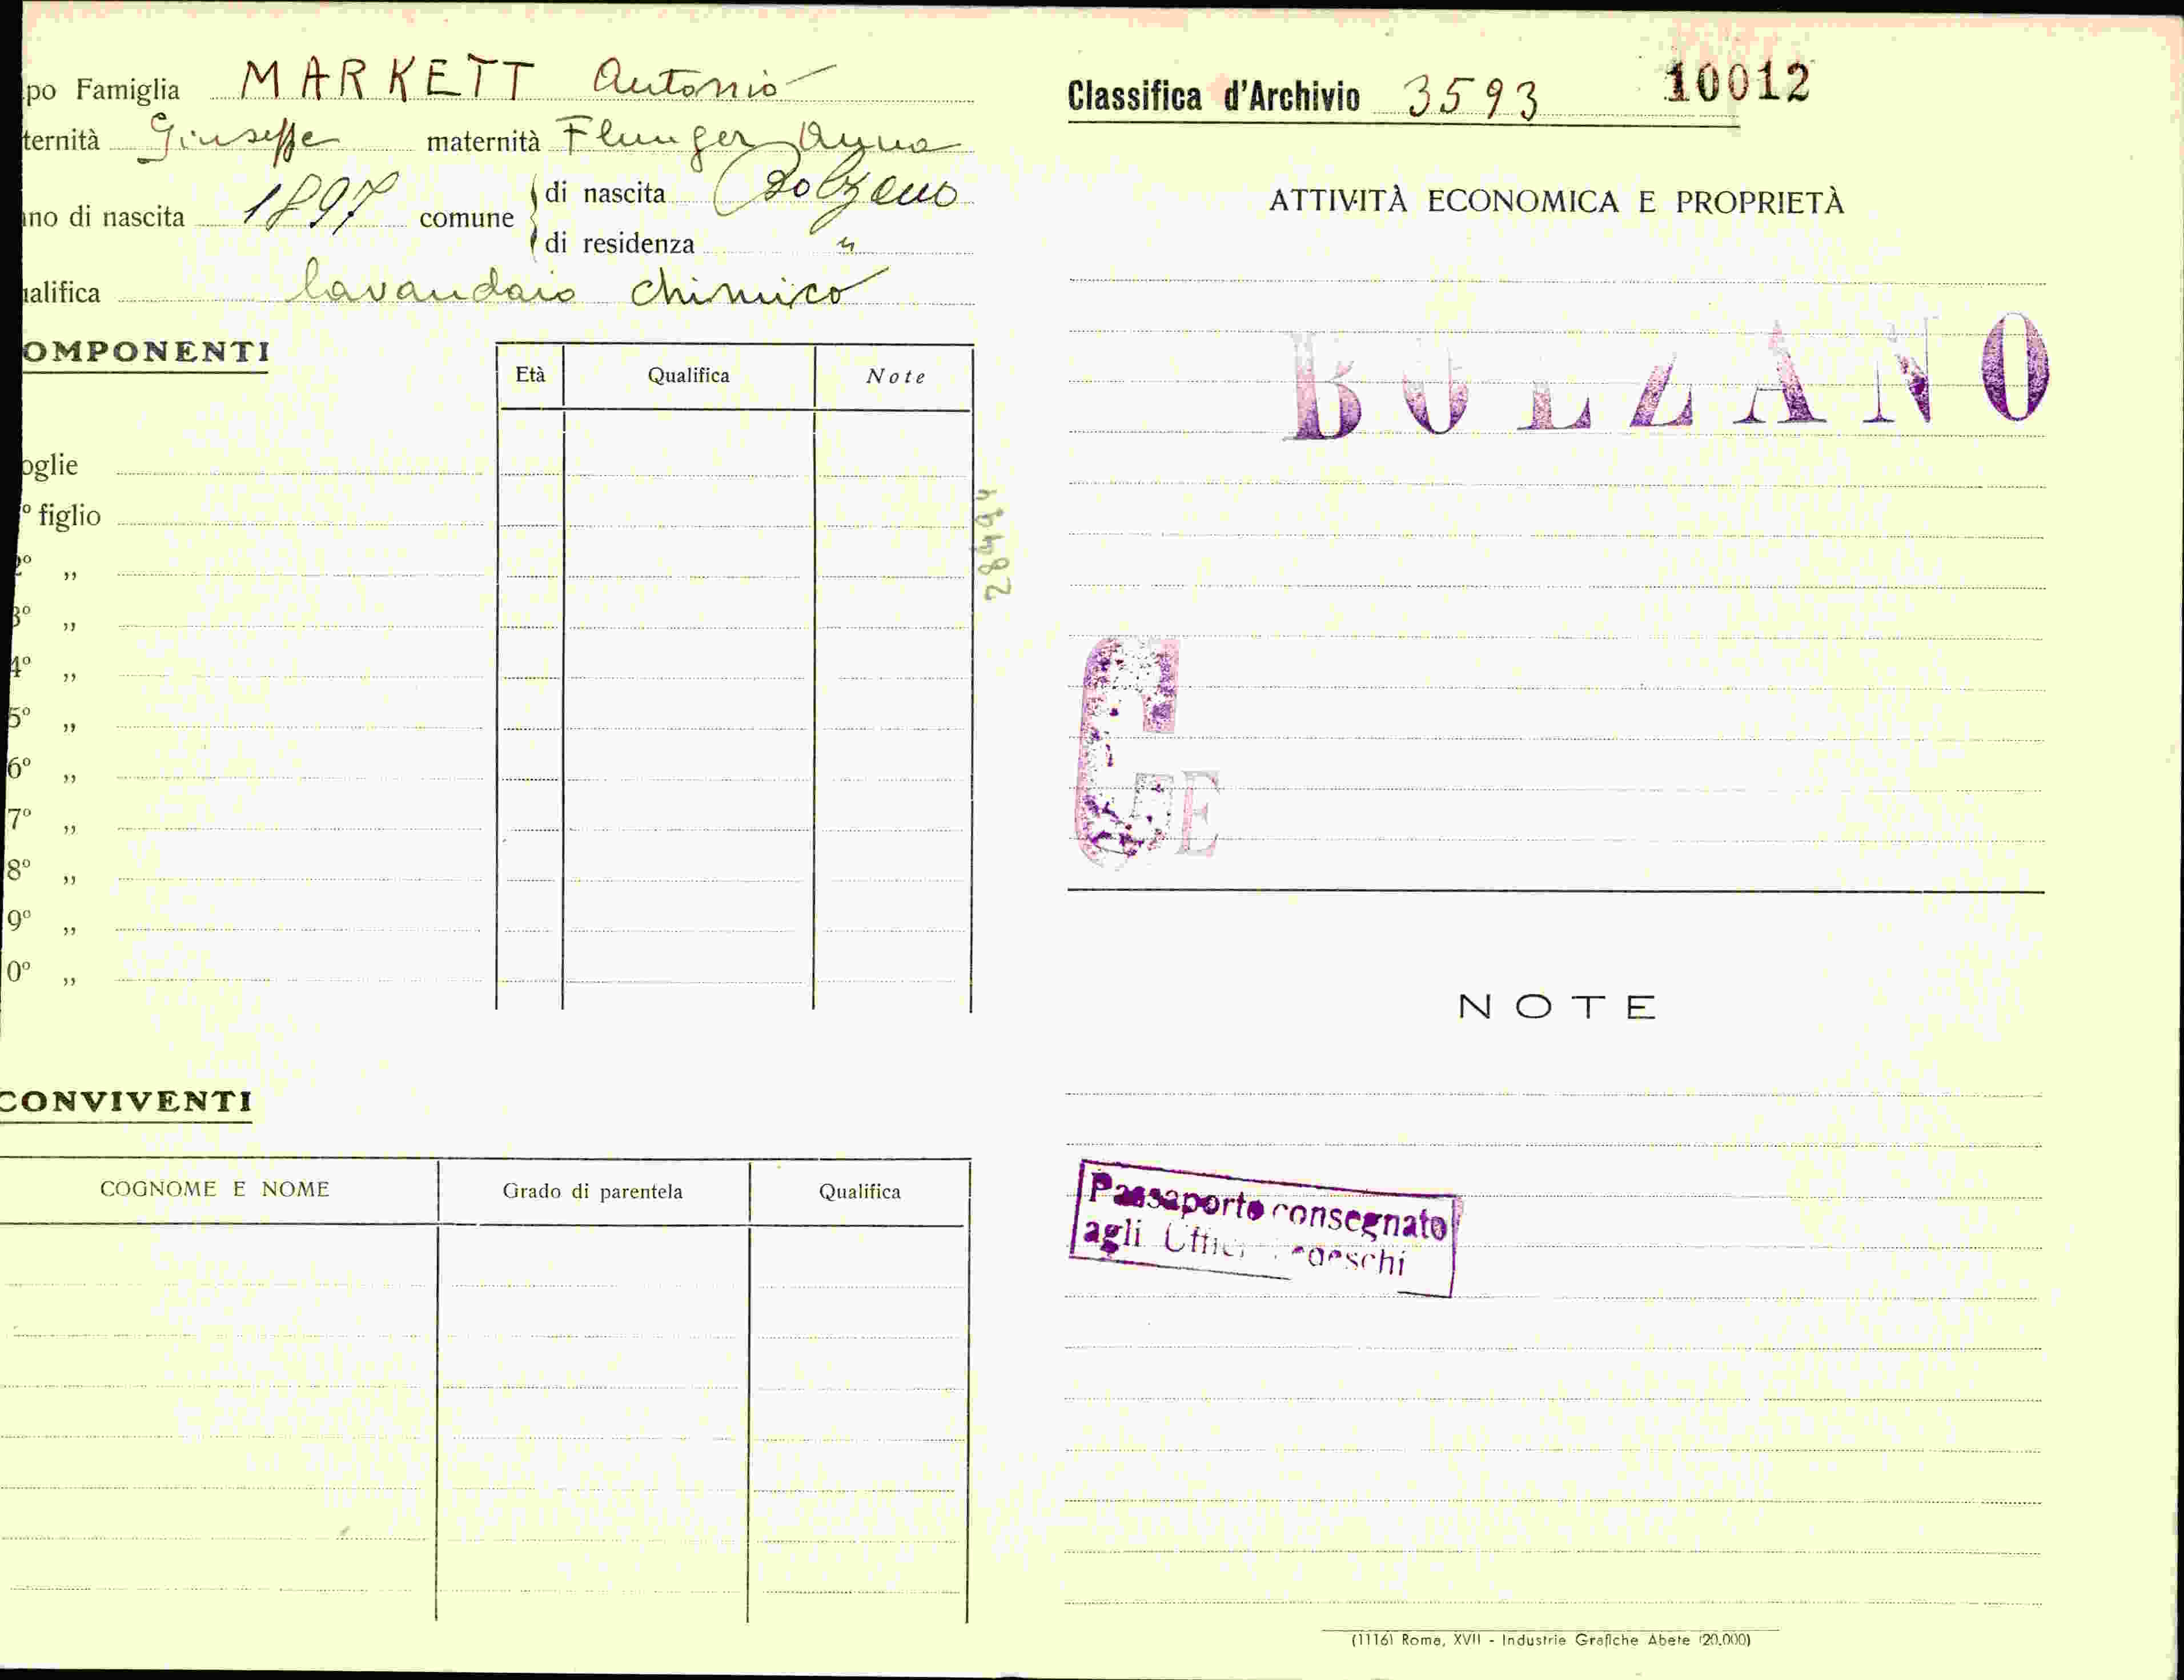 po Famiglia MARKETT Antonio
ternità Giuseppe maternità Flunger Anna
no di nascita 1897 comune di nascita Bolzano
di residenza "
alifica lavandaio chimico
OMPONENTI
Età Qualifica Note
oglie
° figlio
2° „
3° „
4° „
5° „
6° „
7° „
8° „
9° „
0° „
28494
CONVIVENTI
COGNOME E NOME Grado di parentela Qualifica
Classifica d'Archivio 3593 10012
ATTIVITÀ ECONOMICA E PROPRIETÀ
BOLZANO
G E
NOTE
Passaporto consegnato
agli Uffici Tedeschi
(11161 Roma, XVII - Industrie Grafiche Abete (20.000)